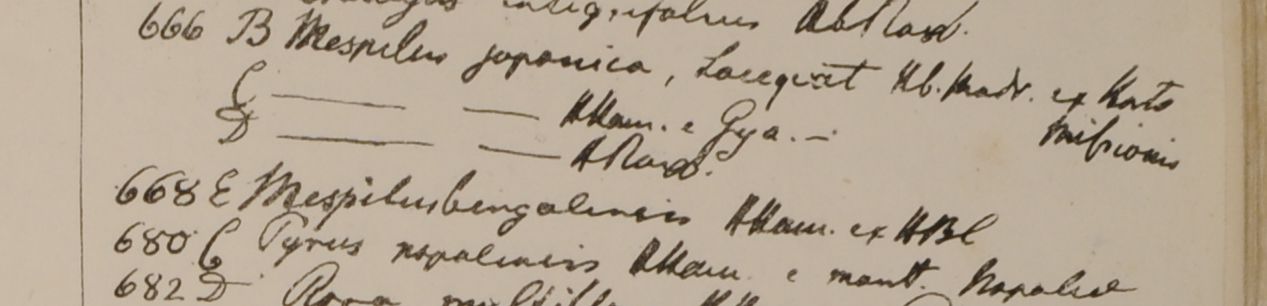 integrifolius Hb Roxb.
666 B Mespilus japonica, Hb. Madr. ex Horto
Missionis
C ——— —— HHam. e Gya. —
D ——— —— HRoxb.
668 E Mespilus bengalensis HHam. ex HBC
680 C Pyrus nepalensis HHam e mont. Napaliae
682 D Rosa